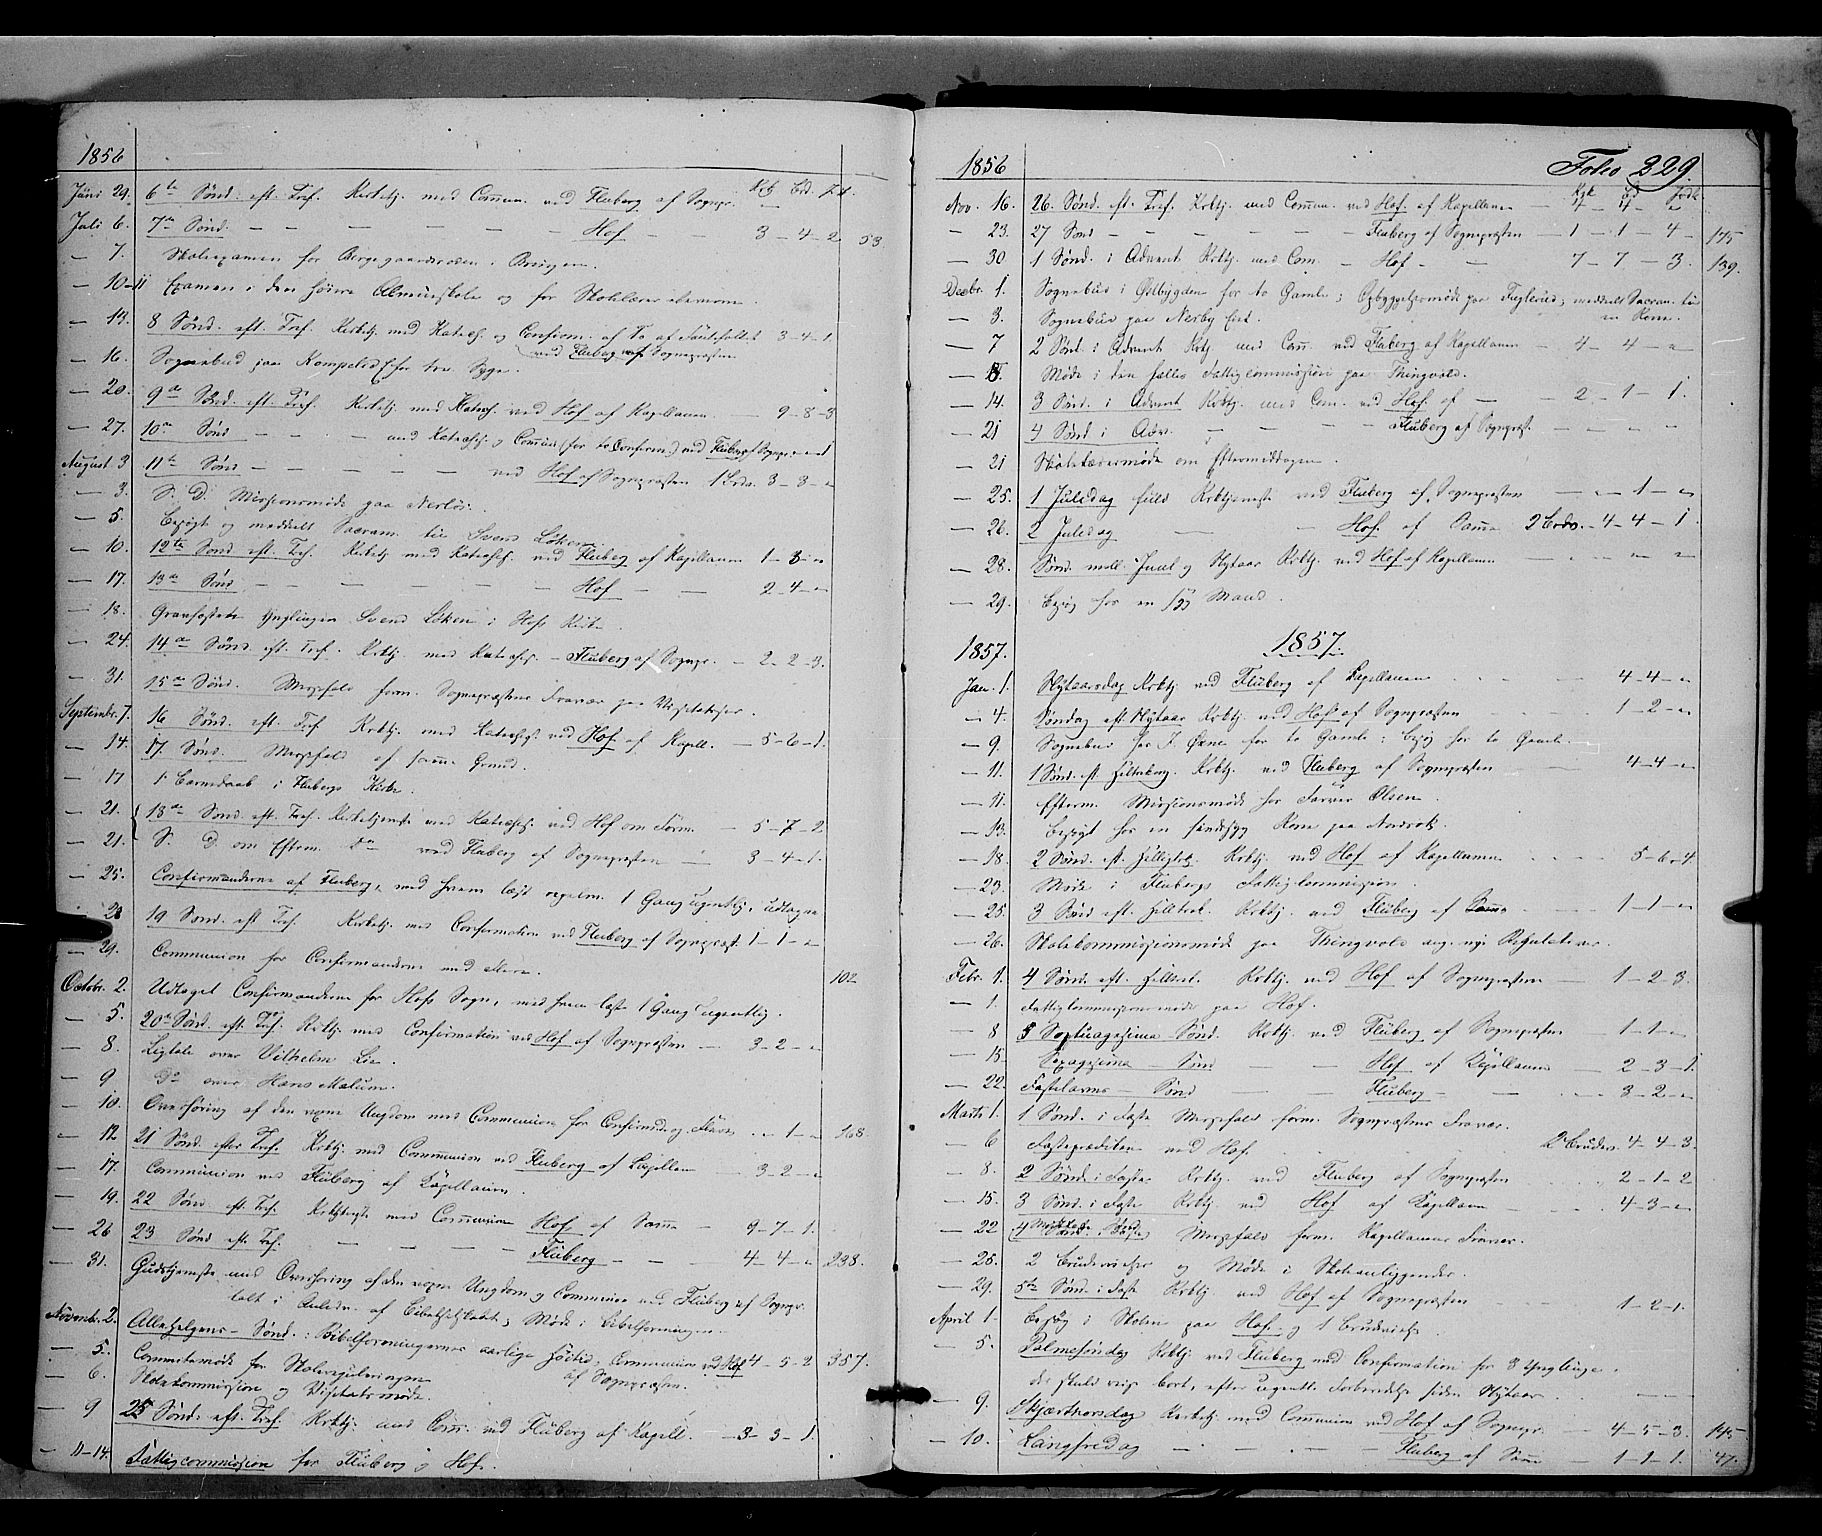 1856
Juni 29. 6te Sønd. eft. Tref. Kirketj. med Commun. ved Fluberg af Sognepr.
Juli 6. 7de Sønd. — — — — — Hof — 3 - 4 - 2 53.
— 7. Skoleexamen for
— 10-11 Examen i den høiere Almueskole og for
— 13. 8 Sønd. eft. Tref. Kirketj. med Katech. og Confirm. af To af 3-4-1
ved Fluberg af Sognepræsten
— 16. Sognebud paa Kompelien for tre Syge.
— 20. 9de Sønd. eft. Tref. Kirketj. med Katech. ved Hof af Kapellanen — 9-8-3
— 27. 10de Sønd — — — med Katech. og Comm. (for to Confirm.) ved Fluberg af Sognepr. 1
August 3 11te Sønd — — — — — ved Hof af Sognepræsten 1 Brdv. 3-3-"
— 3. S. D. Missionsmøde paa Nerlös.
— 5. Besøgt og meddelt Sacram. til Svend Löken.
— 10. 12te Sønd eft. Tref. Kirketj. med Katechs. ved Fluberg af Kapellanen 1-3-"
— 17. 13de Sønd — — — — Hof — — 2-4-"
— 18. Gravfæstede Ynglingen Svend Löken i Hofs Kirke.
— 24. 14de Sønd. eft. Tref. Krktj. med Katechs. — Fluberg af Sognepr. — 2-2-3.
— 31. 15de Sønd. Messefald form. Sognepræstens Fravær paa Visitatser.
Septembr. 7. 16 Sønd. eft. Tref Krktj. med Katechs. ved Hof af Kapell. — 5-6-1.
— 14. 17 Sønd. Messefald af samme Grund.
— 17 1 Barnedaab i Flubergs Kirke.
— 21. 18de Sønd. eft. Tref. Kirketjeneste med Katechs. ved Hof om Form. — 5-7-2.
— 21. S. D. om Efterm. Do ved Fluberg af Sognepræsten — 3-4-1.
— 25. Confirmanderne af Fluberg, med hvem læst regelm. 1 Gang ugentlig, udtagne
— 28 19 Sønd. eft Tref. Kirketj. med Confirmation ved Fluberg af Sognepræst. 1-1-"
— 29. Communion for Confirmanderne med Flere. 102
Octobr. 2. Udtaget Confirmanderne for Hofs Sogn, med hvem læste 1 Gang ugentlig.
— 5. 20de Sønd. eft. Tref. Krktj. med Confirmation ved Hof af Sognepræsten — 3-2-"
— 8. Ligtale over Vilhelm Lie.
— 9 Do over Hans Malum.
— 10. Overhøring af den voxne Ungdom med Communion for Confirmde og Flere — 1 — " 168.
— 12 21 Sønd. efter Tref. Krktj. med Communion ved Fluberg af Kapellan — 3-2-"
— 17. Communion ved Fluberg af Kapellanen.
— 19. 22 Sønd. eft. Tref. Krktjenste med Communion Hof af Samme — 9-7-1.
— 26 23 Sønd eft. Tref. — — — — Fluberg — — 4-4-" 238.
— 31. Gudstjeneste med Overhøring af den voxne Ungdom og Communion ved Fluberg af Sognepr.
talt i Anledn. af Bibelselskabet; Møde i Bibelforeningen.
Novembr. 2. Allehelgens-Sønd.: Bibelforeningernes aarlige Høitid, Communion ved Hof 4-5-2 357.
af Sognepræsten.
— 5. Commitemøde for Skolereguleringen
— 6. Skolekommission og Visitatsmøde.
— 9 25 Sønd. eft. Tref. Krktj. med Com. ved Fluberg af Kapell. — 3-3-1.
— 11-14. Fattigcommission for Fluberg og Hof.
1856 Folio 229.
Nov. 16. 26. Sønd. eft. Tref. Krktj. med Commun. ved Hof af Kapellanen — 4 — 4 — "
— 23. 27 Sønd — — — — — Fluberg af Sognepræsten — 1 — 1 — 4 — 175
— 30 1 Sønd. i Advent Krktj. med Com. — Hof — — 7 — 7 — 3. 139.
Decbr. 1. Sognebud i Østbygden for to Gamle; Opbyggelsesmøde paa Fuglerud; meddelt Sacram. til
en Kone.
— 3. Sognebud paa Nerby Eie.
— 7 2 Sønd. i Advent Krktj. med Com. ved Fluberg af Kapellanen — 4 — 4 — "
— 8. Møde i den fælles Fattigcommission paa Thingvold.
— 14. 3 Sønd. i Advent Krktj. med Com. ved Hof af — — 2 — 1 — 1.
— 21 4 Sønd i Adv. — — — — Fluberg af Sognepræst. — — — —
— 21 Skolelærermøde om Eftermiddagen.
— 25. 1 Juledag fuld Krktjeneste ved Fluberg af Sognepræsten — " — 1 — "
— 26. 2 Juledag — — Hof af Samme 2 Brdv. — 4-4-1.
— 28. Sønd. mell. Juul og Nytaar Krktj. ved Hof af Kapellanen — " — " — "
— 29. Besøg hos en syg Mand.
1857. 1857.
Jan. 1. Nytaarsdag Krktj. ved Fluberg af Kapellanen 4-4-"
— 4. Søndag eft. Nytaar Krktj. ved Hof af Sognepræsten 1-2-"
— 9. Sognebud paa for to Gamle; Besøg hos to Gamle.
— 11. 1 Sønd. eft Helltrekong. Krktj. ved Fluberg af Sognepræsten 4-4-"
— 11. Efterm. Missionsmøde hos Farver Olsen.
— 13. Besøgt hos en sindssyg Kone paa Nordvol.
— 18. 2 Sønd. eft. Helligtrk. Krktj. ved Hof af Kapellanen 5-6-4.
— 23. Møde i Flubergs Fattigcommission.
— 25. 3 Sønd eft. Helltrek. Krktj. ved Fluberg af Samme 1-1-"
— 26. Skolekommissionsmøde paa Thingvold ang. nye Regulativer.
Febr. 1. 4 Sønd. eft. Helltrek. Krktj. ved Hof af Sognepræsten — 1-2-3.
— 1. Fattigkommissionsmøde paa Hof.
— 8 Septuagesima Sønd. Krktj. ved Fluberg af Sognepræsten — 1-1-"
— 15. Sexagesima — Sønd — — Hof af Kapellanen 2-3-1.
— 22. Fastelavns — Sønd — — Fluberg — — 3-2-"
Marts 1. 1 Sønd. i Faste Messefald form. Sognepræstens Fravær.
— 6 Fasteprædiken ved Hof. 2 Brudev. 4-4-3.
— 8. 2 Sønd. i Faste Krktj. ved Fluberg af Sognepræsten 2-1-2
— 15. 3 Sønd. i Faste Krktj. ved Hof af Kapellanen 4-3-"
— 22 (4 Sønd. i Faste) Midfaste Sønd Messefald form. Kapellanens Fravær.
— 28. 2 Brudevielser og Møde i Skoleanliggender.
— 29. 5te Sønd. i Faste Krktj ved Hof af Sognepræsten 1-2-1.
April 1. Besøg i Skolen paa Hof og 1 Brudvielse.
— 5. Palmesøndag Krktj. ved Fluberg med Confirmation for 3 Ynglinge.
der skulde reise bort, efter ugentl. Forberedelse siden Nytaar.
— 9. Skjærthorsdag Kirketj. med Communion ved Hof af Sognepr. — 4-5-3. 145
— 10. Langfredag — — — Fluberg af Samme — 1-1-1. 47.